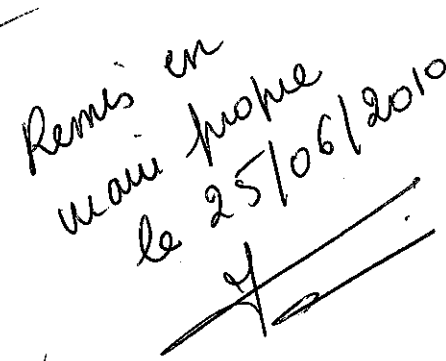 Remis en
main propre
le 25/06/2010